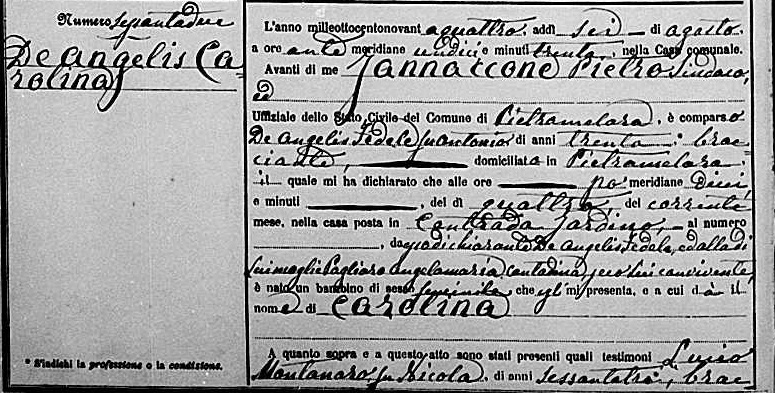 Numero sessantadue
De Angelis Ca-
rolina
* S'indichi la professione o la condizione.
L'anno milleottocentonovantaquattro, addì sei di agosto
a ore anti meridiane undici e minuti trenta, nella Casa comunale.
Avanti di me Iannaccone Pietro Sindaco,
ed
Uffiziale dello Stato Civile del Comune di Pietramelara, è comparso
De Angelis Fedele fu Antonio, di anni trenta, brac-
ciante, domiciliato in Pietramelara,
il quale mi ha dichiarato che alle ore po meridiane dieci,
e minuti , del dì quattro, del corrente
mese, nella casa posta in Contrada Jardino, al numero
, da dichiarante De Angelis Fedele, ed alla di
lui moglie Pagliaro Angelamaria, contadina, seco lui convivente,
è nato un bambino di sesso feminile che egli mi presenta, e a cui dà il
nome di Carolina
A quanto sopra e a questo atto sono stati presenti quali testimoni
Montanaro, fu Nicola, di anni sessantatre, brac-